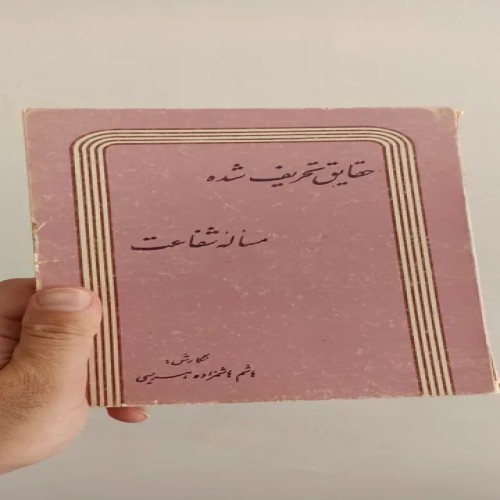 حقایق تحریف شده
مسأله شفاعت
نگارش:
هاشم هاشمزاده هریسی